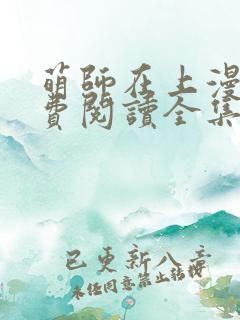 萌師在上漫
費閱讀全集
已更新八章
未任同意禁止轉載